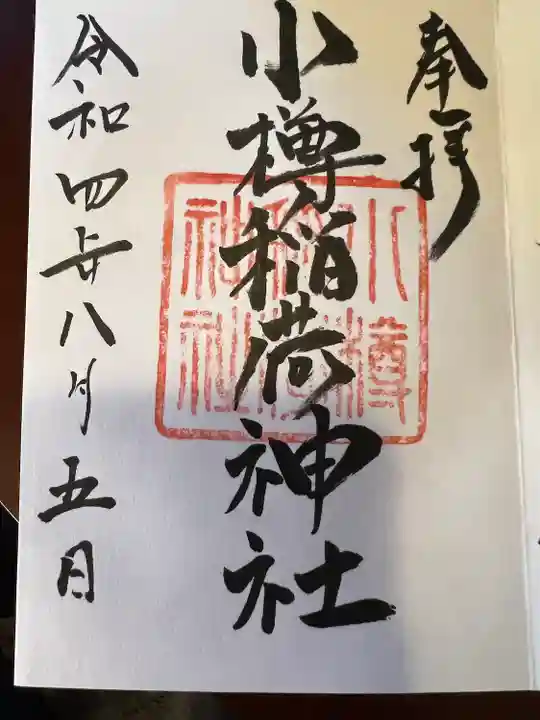 奉拝
小樽稲荷神社
令和四年八月五日
小樽
稲荷
神社